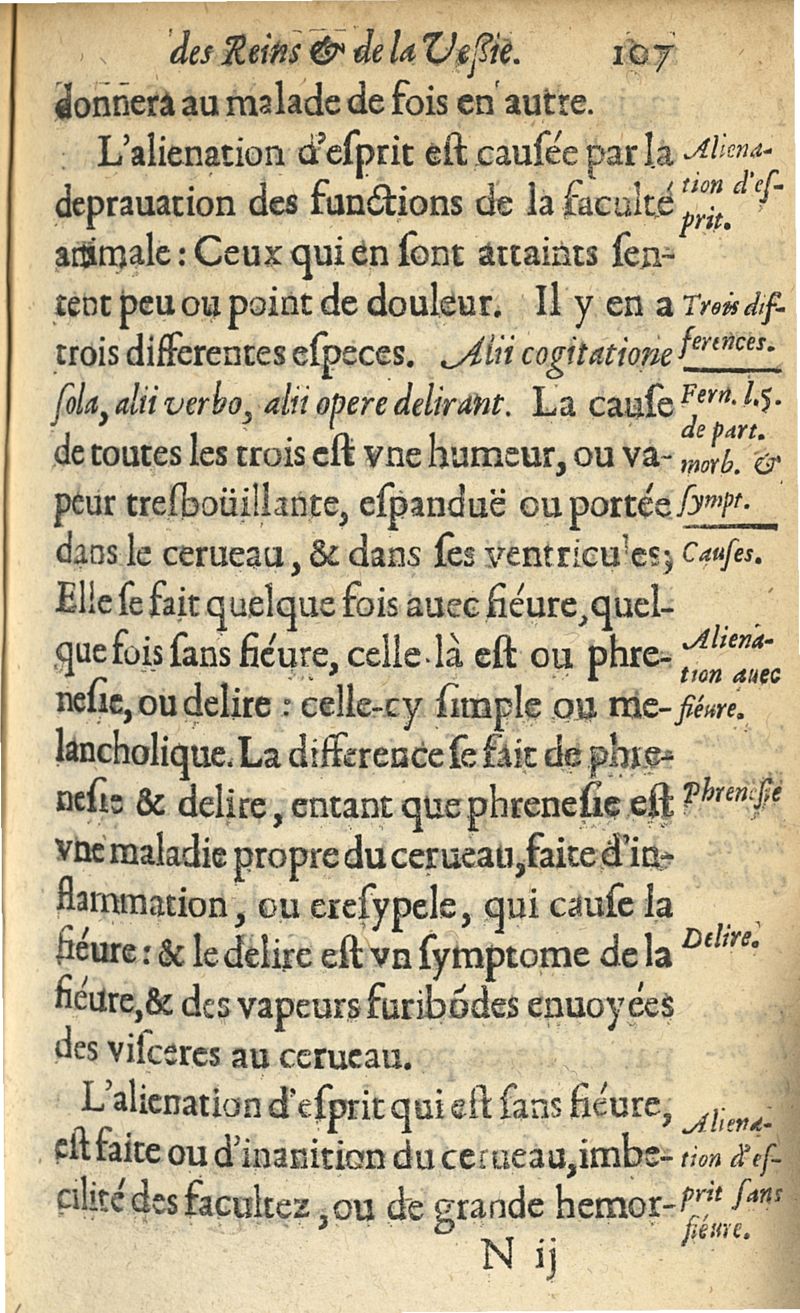 des Reins & de la Veſſie. 107
donnera au malade de fois en autre.
L'alienation d'eſprit eſt cauſée par la
deprauation des functions de la faculté
animale : Ceux qui en ſont attaints ſen-
tent peu ou point de douleur. Il y en a
trois differentes eſpeces. Alii cogitatione
ſola, alii verbo, alii opere delirant. La cauſe
de toutes les trois eſt vne humeur, ou va-
peur tresboüillante, eſpanduë ou portée
dans le cerueau, & dans ſes ventricules;
Elle ſe fait quelque fois auec fiéure, quel-
que fois ſans fiéure, celle-là eſt ou phre-
neſie, ou delire : celle-cy ſimple ou me-
lancholique. La difference ſe fait de phre-
neſie & delire, entant que phreneſie eſt
vne maladie propre du cerueau, faite d'in-
flammation, ou ereſypele, qui cauſe la
fiéure : & le delire eſt vn ſymptome de la
fiéure, & des vapeurs furibõdes enuoyées
des viſceres au cerueau.
L'alienation d'eſprit qui eſt ſans fiéure,
eſt faite ou d'inanition du cerueau, imbe-
cilité des facultez, ou de grande hemor-
N ij
Aliena-
tion d'eſ-
prit.
Trois dif-
ferences.
Fern. l. 5.
de part.
morb. &
ſympt.
Cauſes.
Aliena-
tion auec
fiéure.
Phreneſie
Delire.
Aliena-
tion d'eſ-
prit ſans
fiéure.